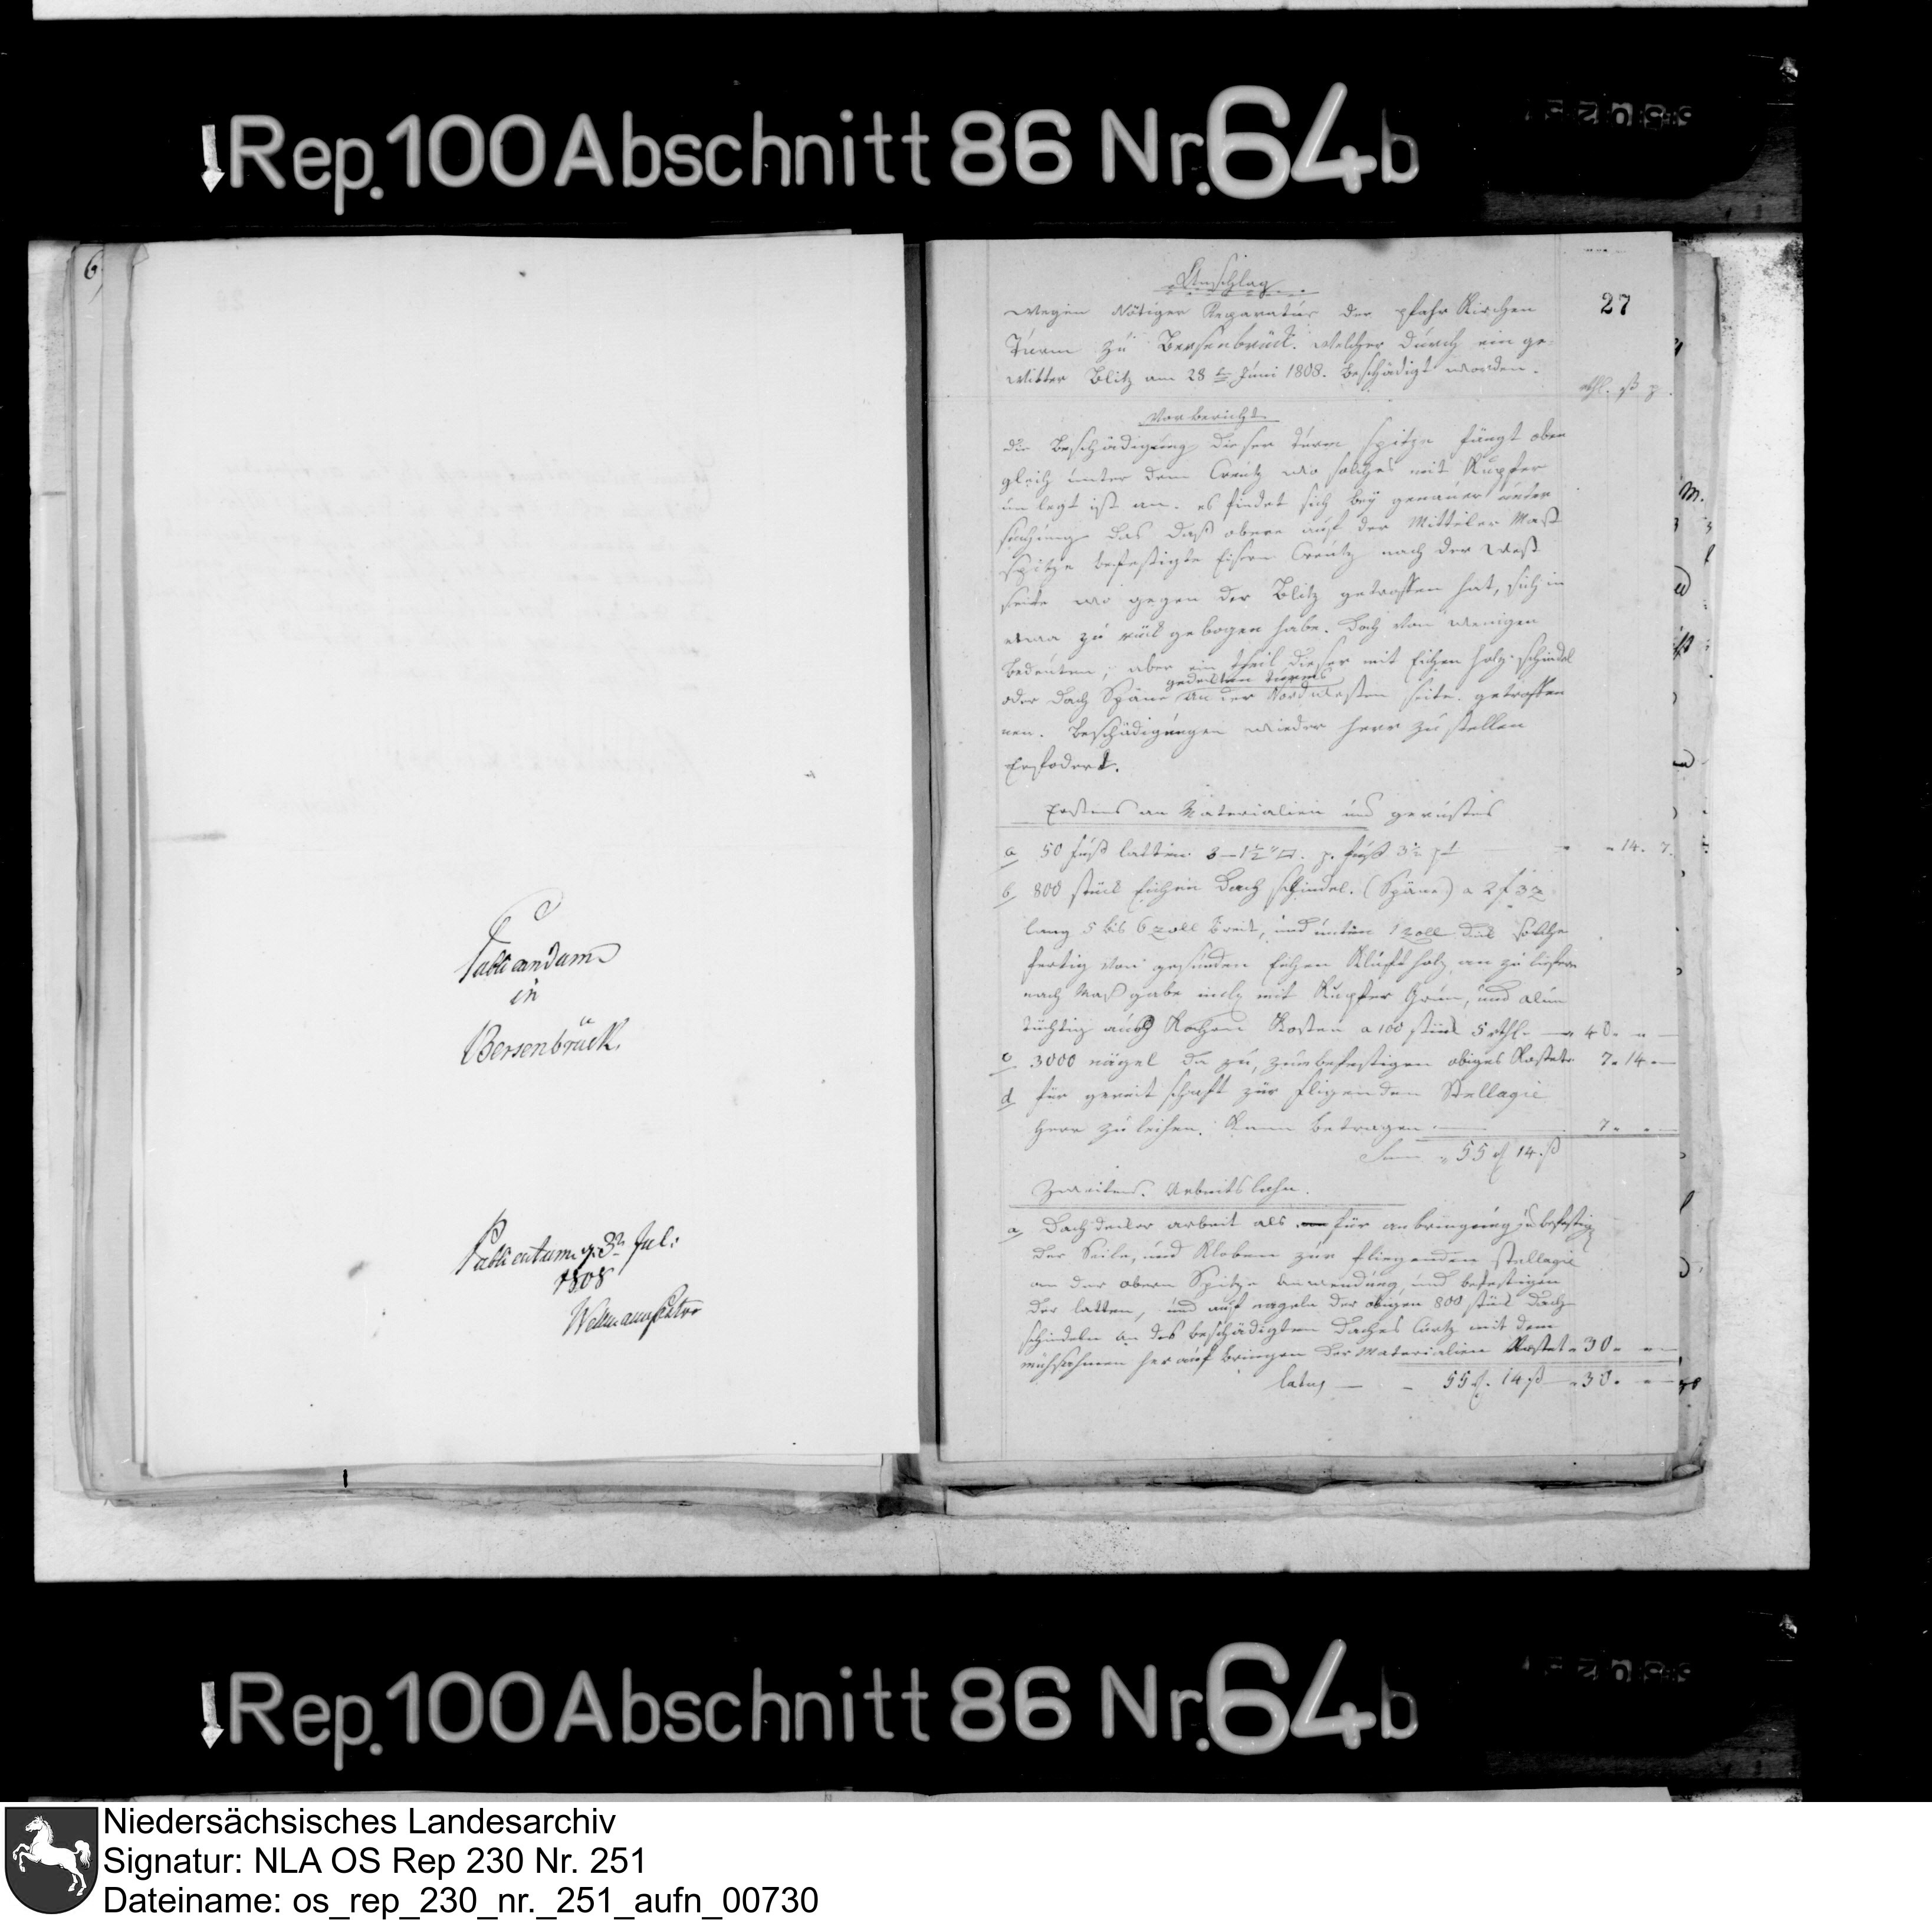 Rep. 100 Abschnitt 86 Nr. 64b
6
Publicandum
in
Bersenbrück.
Publicatum d. 3n Jul:
1808
27
Anschlag
wegen Nötiger Reparatur der pfahr Kirchen
Turm zu Bersenbrück. welcher durch ein ge
witter Blitz am 28 ten Juni 1808. beschädigt worden.
rthl. ß
Vorbericht
die Beschädigung dieser turm spitze fängt oben
gleich unter dem Creutz wo solches mit Kupfer
um legt ist an. es findet sich bey genauer unter
suchung das daß obere auf der Mitteler Mast
spitze befestigte Eisern Creutz nach der West
seite wo gegen der Blitz getroffen hat, sich in
etwa zu rück gebogen habe. doch von wenigen
bedeuten, aber ein theil dieser mit Eichen holz schindel
gedeckten turms
oder dach Späne an der Nordwesten seite getroffe
nen. Beschädigungen wieder herr zu stellen
Erfodert.
Erstens an Materialien und gerüstes
a 50 fuß latten 3 – 1½ p. fuß 3½ – 14. 7.
b 800 stück Eichen Dach schindel. (Späne) a 2 f 3 z
lang 5 bis 6 zoll breit, und unten 1 zoll dick solche
fertig von gesunden Eichen Kluftholz an zu liefern
nach Maß gabe mit Kupfer Grün, und alun
tüchtig aus Kochen Kosten a 100 stück 5 rthl. – 40. „ –
c 3000 nägel da zu, zum befestigen obiges Kostet 7 „ 14 „ –
d für gereit schaft zur fligenden Stellagie
herr zu leihen. Kann betragen — 7 „ „ –
Sum „ 55 rt 14 ß
Zweitens. Arbeitslohn.
a, Dachdecker arbeit als für anbringung u befestig
der Seile, und Kloben zur fliegenden stellagie
an der obern Spitze anwendung und befestigen
der latten, und auf nageln der obigen 800 stück dach
schindeln an des beschädigten Daches mit dem
mühsahmen herauf bringen der Materialien Kostet „ 30 „ „ –
latus — – 55 rt. 14 ß – „ 30. „ –
Rep. 100 Abschnitt 86 Nr. 64b
Niedersächsisches Landesarchiv
Signatur: NLA OS Rep 230 Nr. 251
Dateiname: os_rep_230_nr._251_aufn_00730